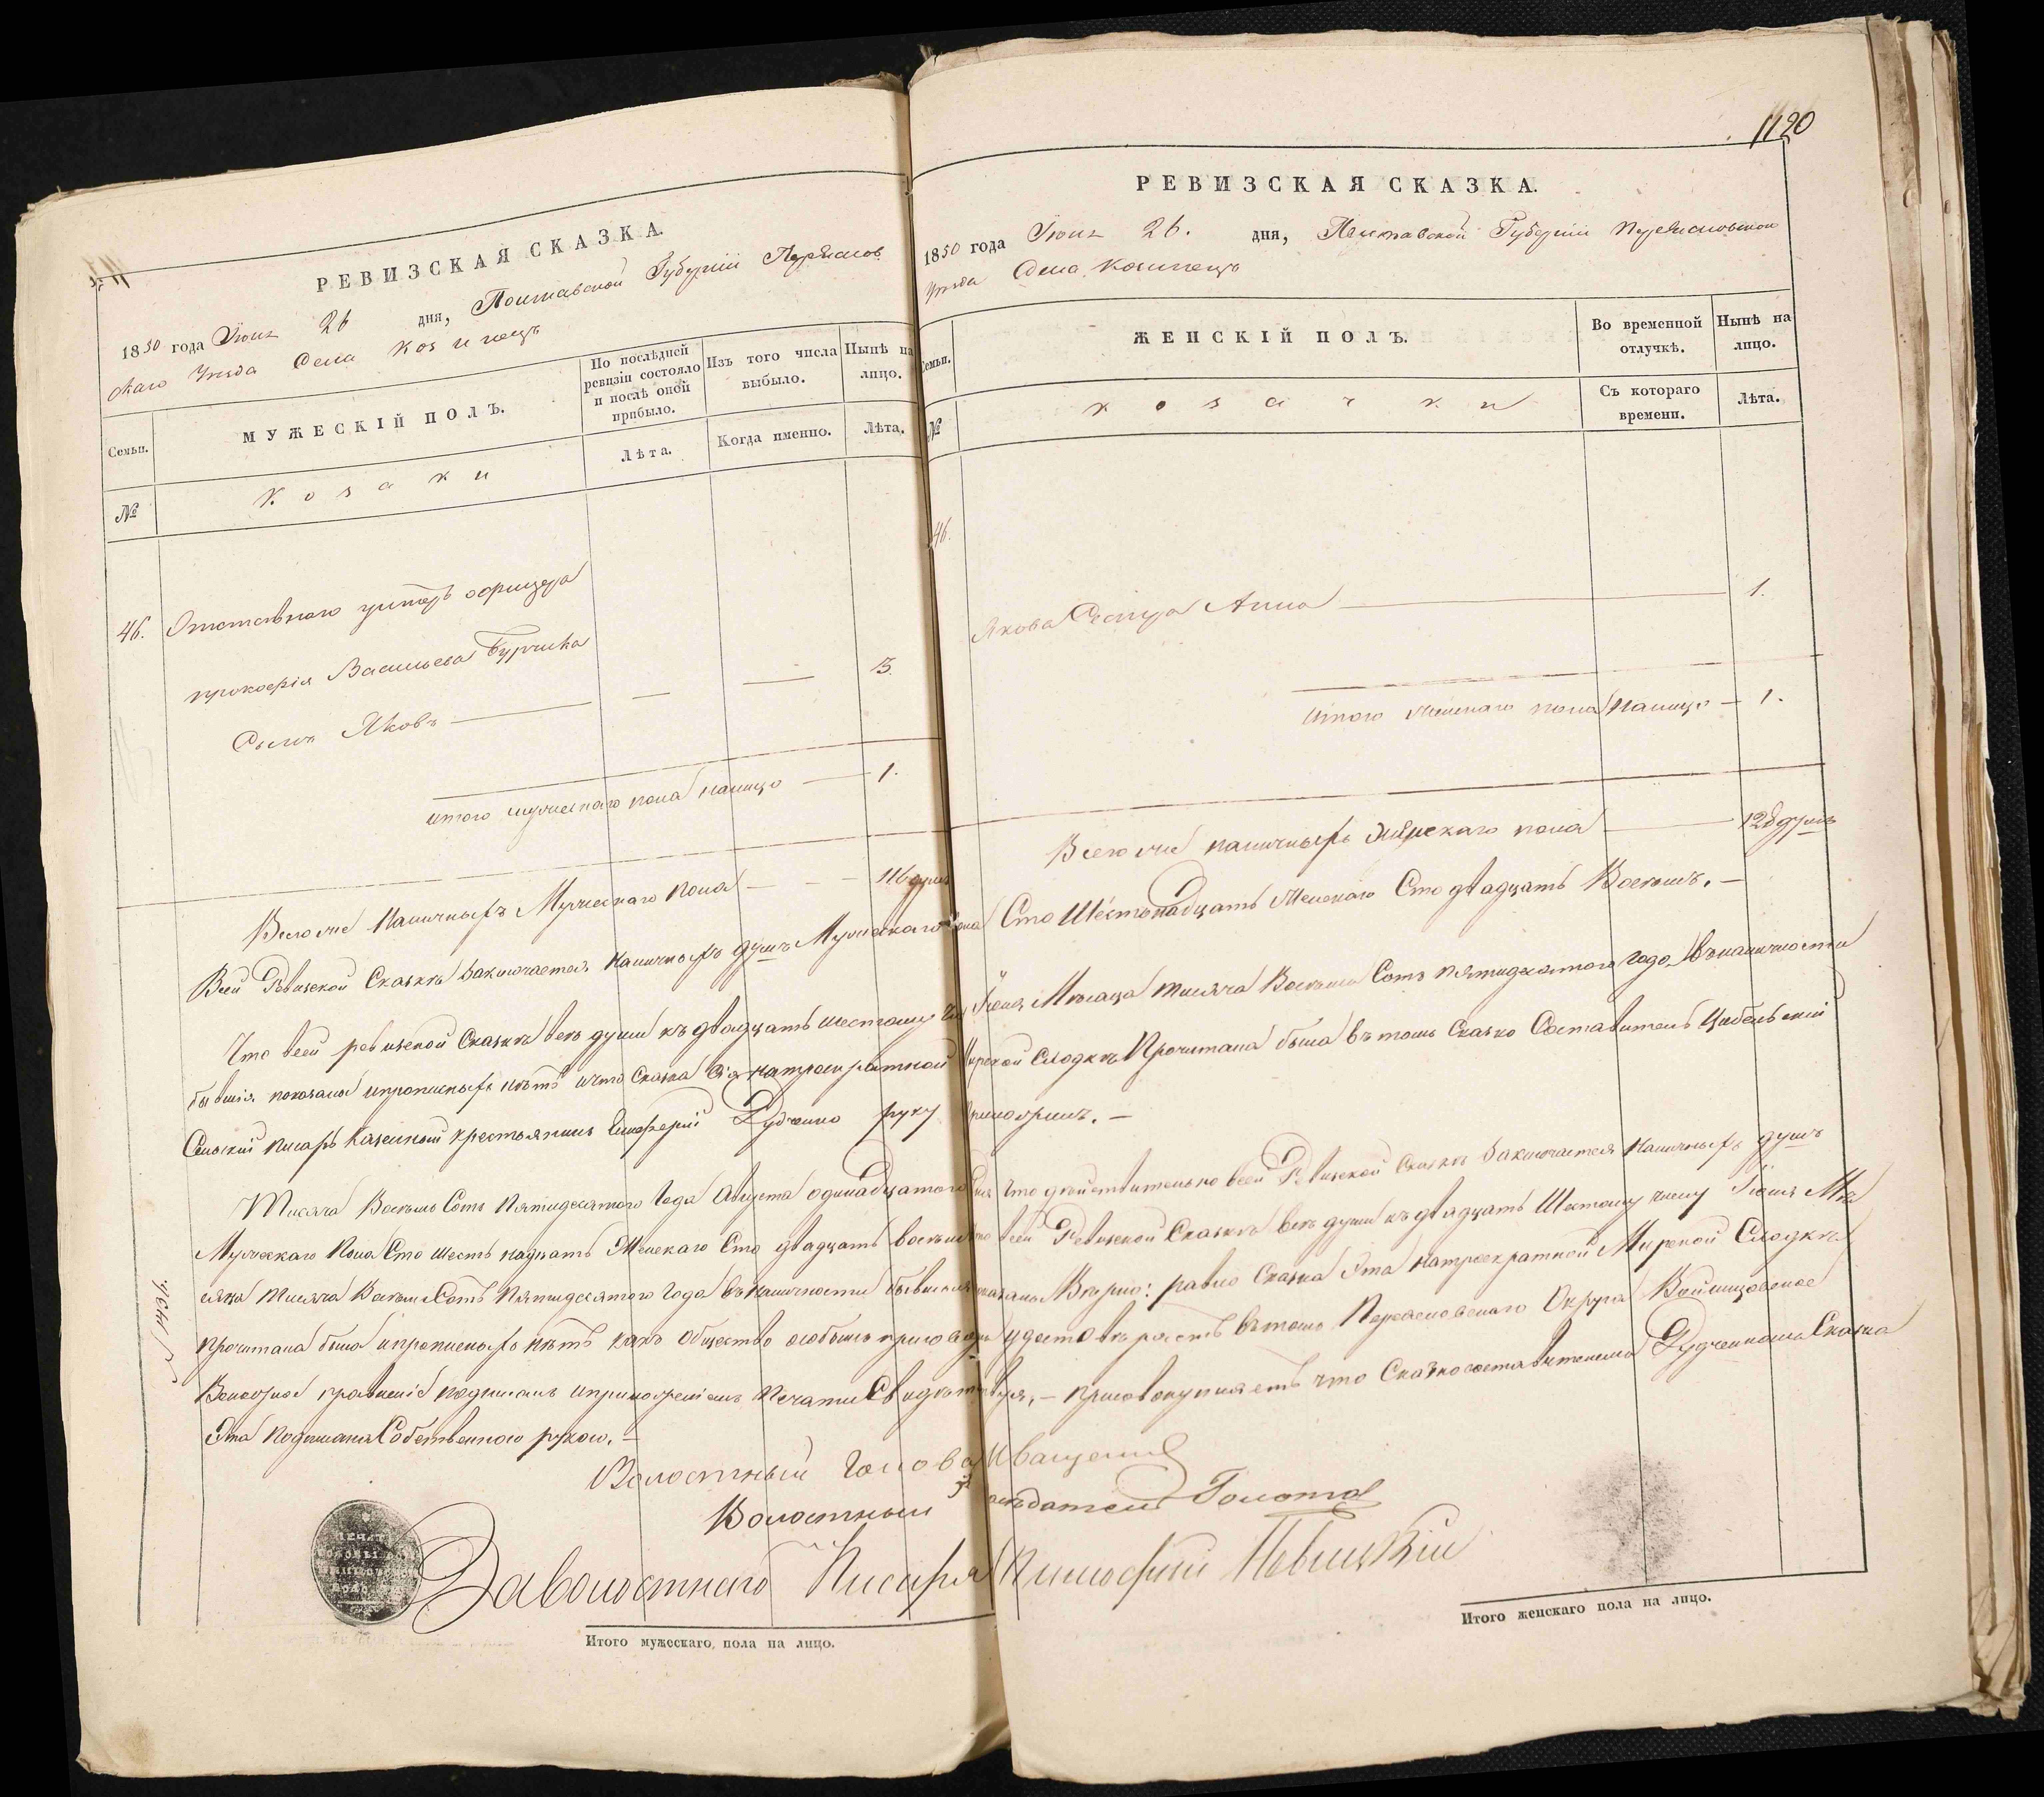 РЕВИЗСКАЯ СКАЗКА.
1850 года Іюня 26 дня, Полтавской Губерніи Переяслов
скаго Уезда Села Козинецъ
Семьи.
МУЖЕСКІЙ ПОЛЪ.
По послѣдней ревизіи состояло и послѣ оной прибыло.
Изъ того числа выбыло.
Нынѣ на лицо.
№
Козаки
Лѣта.
Когда именно.
Лѣта.
46. Отставнаго унтеръ офицера
прокофія Васильева Бурчика
Сынъ Яковъ — — — 3.
итого мужескаго пола налицо — 1.
Всего же Наличныхъ Мужескаго пола — — — 116 душъ
1120
РЕВИЗСКАЯ СКАЗКА.
1850 года Іюня 26. дня, Полтавской Губерніи Переясловскаго
Уезда Села Козинецъ
Семьи.
ЖЕНСКІЙ ПОЛЪ.
Во временной отлучкѣ.
Нынѣ на лицо.
№
козачки
Съ котораго времени.
Лѣта.
46.
Якова Сестра Анна — 1.
Итого Женскаго пола Налицо — 1.
Всего же наличныхъ Женскаго пола — 128 душъ
Всей Ревизской Сказкѣ Заключается Наличныхъ душъ Мужескаго пола Сто Шестьнадцать Женскаго Сто двадцать Восемъ. —
Что всей ревизской Сказкѣ всѣ души къ двадцать шестому числу Іюня Мѣсяца тысяча Восемь Сотъ пятидесятого Года въ наличности
бывшія показаны и прописныхъ нѣтъ и что Сказка Сія на троекратной Мирской Сходкѣ Прочитана была въ томъ Сказко Составитель
Сельскій писарь казенный крестьянинъ Дудченко руку приложилъ. —
Тысяча Восемь Сотъ Пятидесятого Года Августа одинадцатого дня Что дѣйствительно всей Ревизской Сказкѣ Заключается Наличныхъ душъ
Мужескаго Пола Сто шесть надцать Женскаго Сто двадцать восемь что всей Ревизской Сказкѣ всѣ души къ двадцать Шестому числу Іюня Мѣ
сяца тысяча Восемь Сотъ Пятидесятого Года въ Наличности бывшія показаны Вѣрно: равно Сказка Эта на троекратной Мирской Сходкѣ
прочитана была и прописныхъ нѣтъ какъ общество особымъ приговоромъ удостовѣряетъ въ томъ Переясловскаго Округа Войтовское
Волостное правленіе подписомъ и приложеніемъ Печати Свидѣтельствуя, — присовокупляетъ что Сказкосоставителемъ Дудченкомъ Сказка
Эта подписана Собственною рукою. —
Волостный Голова Иващенко
Волостный Засѣдатель Голота
За волостнаго Писаря
Итого мужескаго пола на лицо.
Итого женскаго пола на лицо.